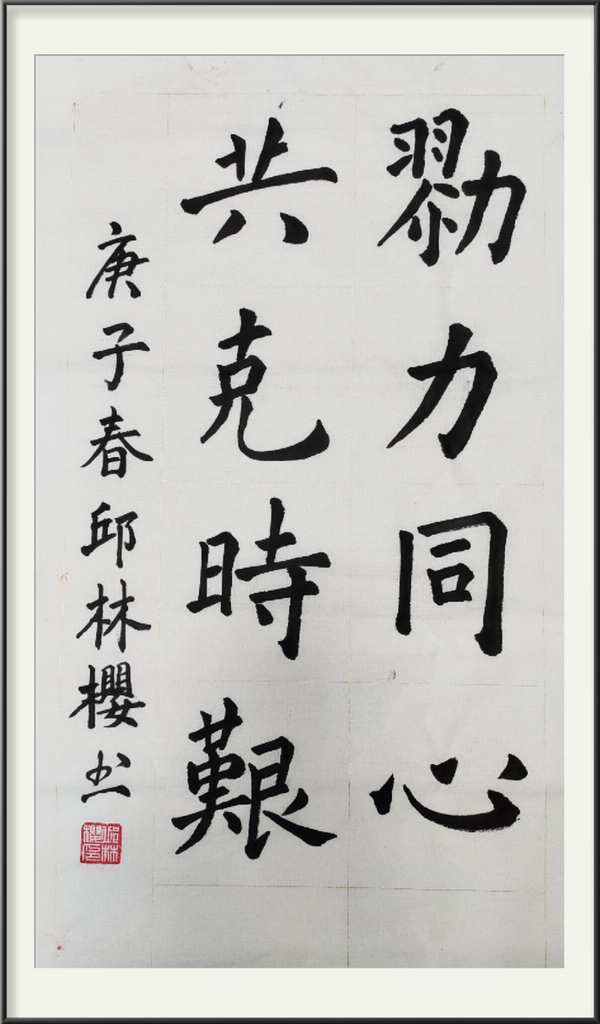 勠力同心
共克時艱
庚子春邱林櫻书
邱林
櫻印